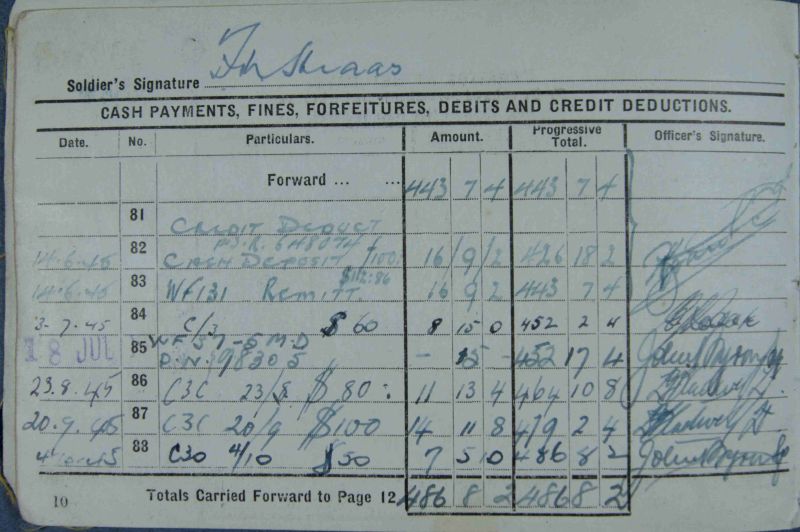 Soldier's Signature
CASH PAYMENTS, FINES, FORFEITURES, DEBITS AND CREDIT DEDUCTIONS.
Date. No. Particulars. Amount. Progressive Total. Officer's Signature.
Forward ... ... 443 7 4 443 7 4
81 CREDIT DEDUCT
82
14.6.45 CASH DEPOSIT 16/9/2 426 18 2
83 $112.86
14.6.45 WF131 Remitt 16 9 2 443 7 4
3-7.45 84 C/3 $60 8 15 0 452 2 4
18 JUL 85 WF37-SMD
D.W. 98305 - 15 - 452 17 4
23.8.45 86 C3C 23/8 $80: 11 13 4 464 10 8
20.9.45 87 C3C 20/9 $100 14 11 8 479 2 4
88 C30 4/10 $50 7 5 10 486 8 2
10 Totals Carried Forward to Page 12 486 8 2 486 8 2